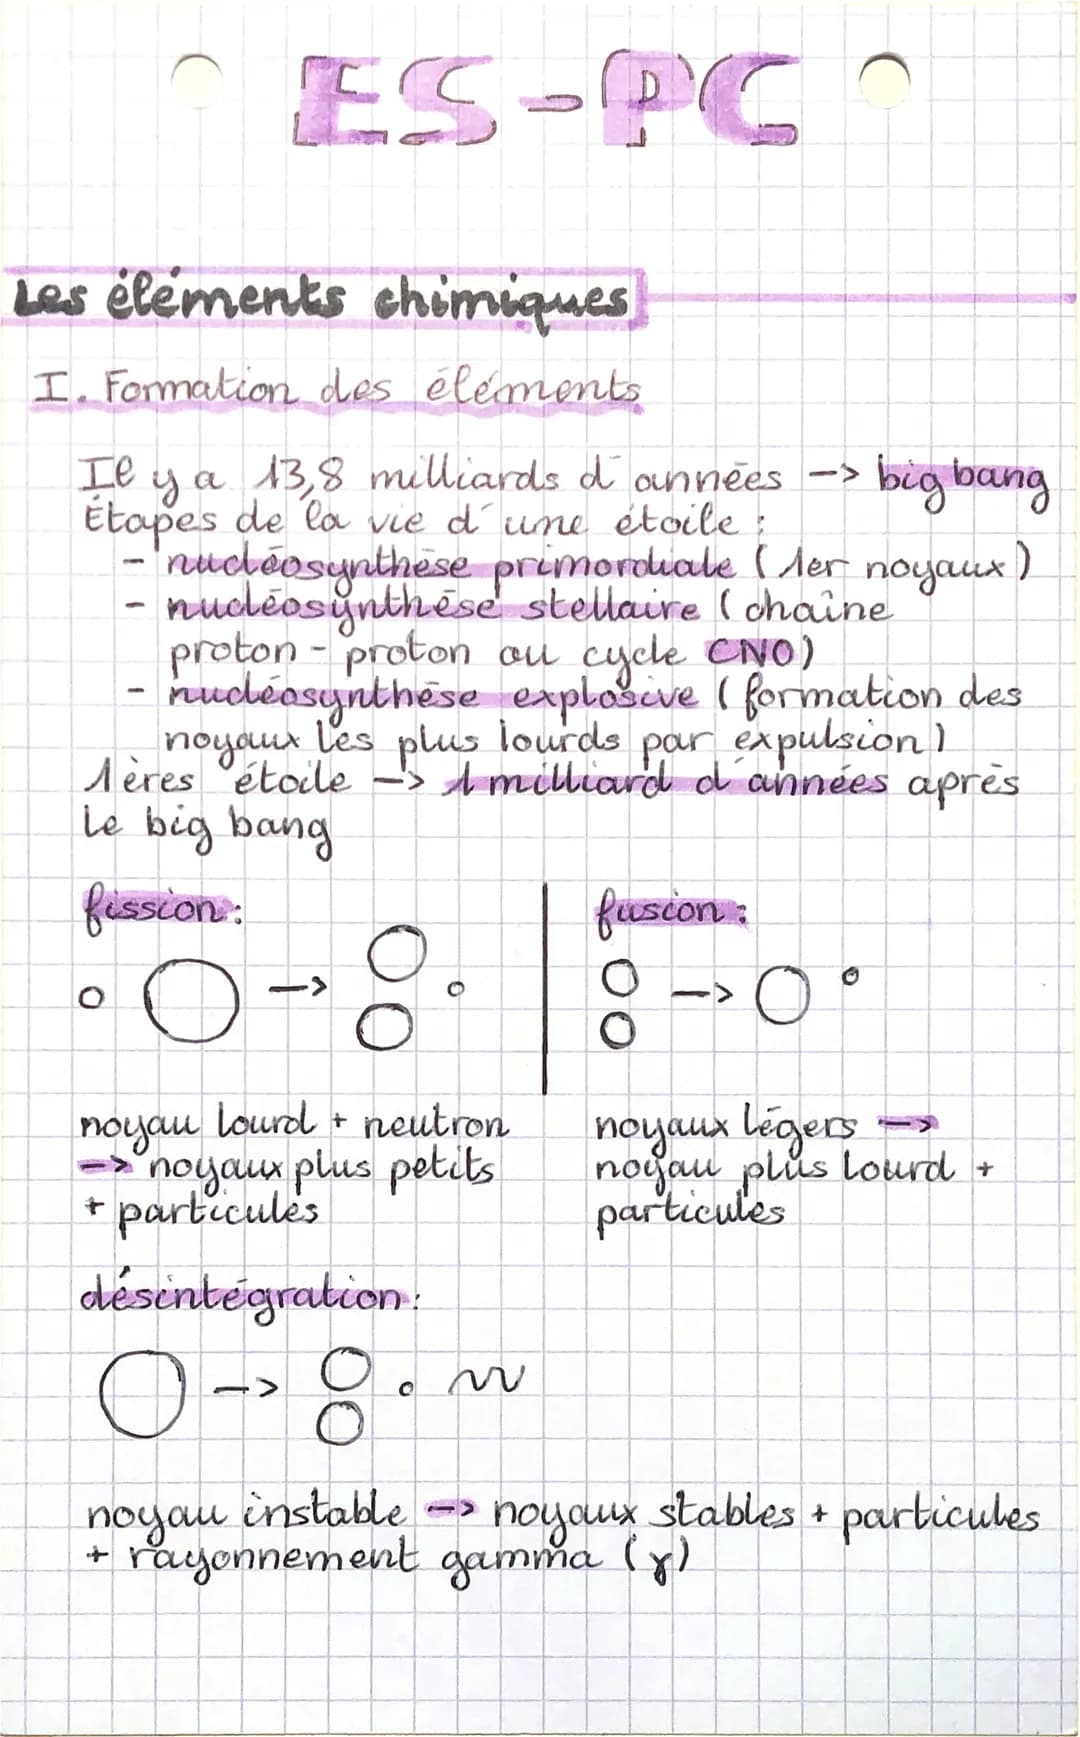 ES-PC
Les éléments chimiques
I. Formation des éléments
Il y a 13,8 milliards d'années -> big bang
Étapes de la vie d'une étoile :
- nucléosynthèse primordiale (1er noyaux)
- nucléosynthèse stellaire (chaîne
proton-proton ou cycle CNO)
- nucléosynthèse explosive (formation des
noyaux les plus lourds par expulsion)
1ères étoile -> 1 milliard d'années après
le big bang
fission :
fusion :
->
->
noyau lourd + neutron
-> noyaux plus petits
+ particules
noyaux légers ->
noyau plus lourd +
particules
désintégration :
->
noyau instable -> noyaux stables + particules
+ rayonnement gamma (γ)